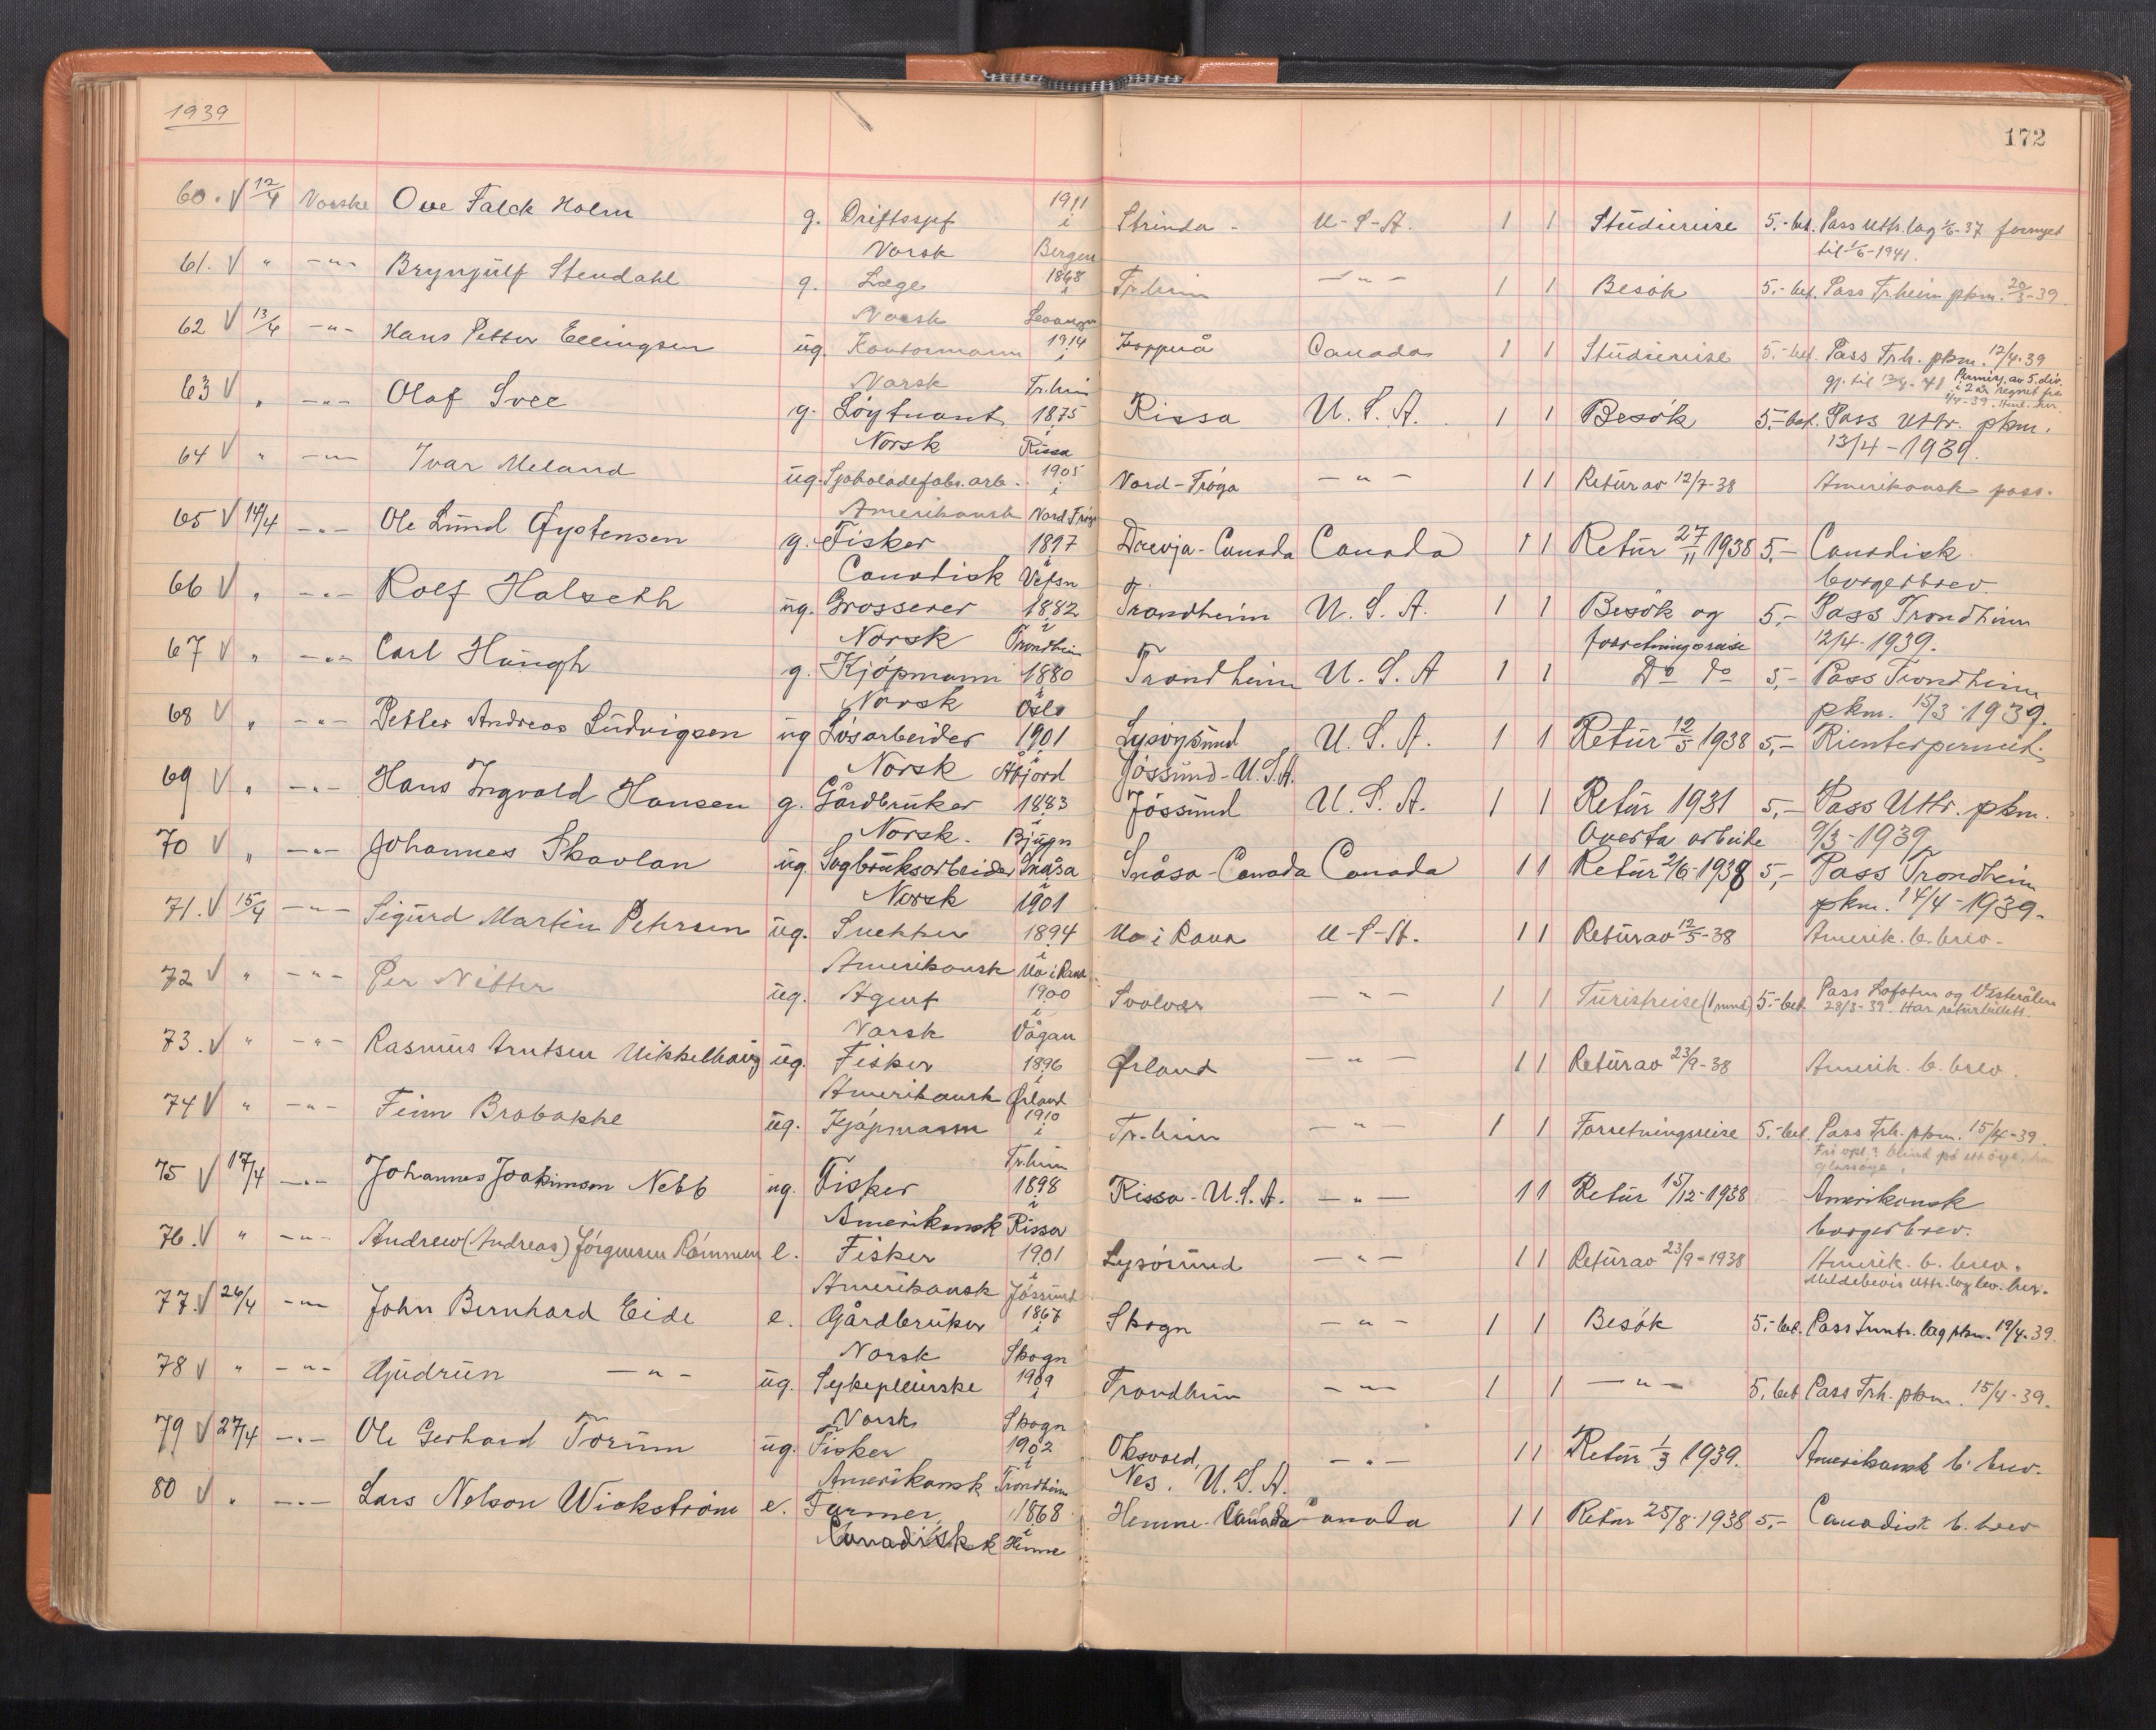 1939
172
60. V 12/4 Norske Ove Falck Holm g. Driftssjef 1911 i Strinda - U-S-A. 1 1 Studiereise 5.- bet. Pass Uttr. lag 1/6-37 fornyet
Norsk Bergen til 1/6-1941.
61. V " -"- Brynjulf Stendahl g. Læge 1868 i Tr.heim -"- 1 1 Besøk 5.- bet. Pass Tr.heim pkm. 20/3-39
Norsk Levanger
62 V 13/4 -"- Hans Petter Ellingsen ug. Kontormann 1914 i Hoppnå Canada 1 1 Studiereise 5.- bet. Pass Trh. pkm. 12/4-39
Norsk Tr.heim
63 V " -"- Olaf Sve g. Löytnant 1875 i Rissa U.S.A. 1 1 Besök 5.- bet. Pass Uttr. pkm.
Norsk Rissa 13/4-1939.
64 V " -"- Ivar Meland ug. Sjokoladefabr.arb. 1905 i Nord-Fröya -"- 1 1 Retur av 12/7-38 Amerikansk pass.
Amerikansk Nord Fröya
65 V 14/4 -"- Ole Lund Øystensen g. Fisker 1897 i Drevja-Canada Canada 1 1 Retur 27/11 1938 5,- Canadisk
Canadisk Vefsn borgerbrev.
66 V " -"- Rolf Halseth ug. Grosserer 1882 i Trondheim U.S.A. 1 1 Besök og 5,- Pass Trondheim
Norsk Trondheim forretningsreise 12/4-1939.
67 V " -"- Carl Haugh g. Kjöpmann 1880 i Trondheim U.S.A 1 1 Do do 5,- Pass Trondheim
Norsk Oslo pkm. 15/3-1939.
68 V " -"- Petter Andreas Ludvigsen ug Lösarbeider 1901 i Lysöysund U.S.A. 1 1 Retur 12/5 1938 5,- Rienterpermit.
Norsk Åfjord Jössund-U.S.A.
69 V " -"- Hans Ingvald Hansen g. Gårdbruker 1883 i Jössund U.S.A. 1 1 Retur 1931 5,- Pass Uttr. pkm.
Norsk. Bjugn Overta arbeide 9/3-1939
70 V " -"- Johannes Skavlan ug. Sagbruksarbeider Snåsa i Snåsa-Canada Canada 1 1 Retur 2/6-1938 5,- Pass Trondheim
Norsk 1901 pkm. 14/4-1939.
71. V 15/4 -"- Sigurd Martin Petersen ug. Snekker 1894 i Mo i Rana U-S-A. 1 1 Retur av 12/5-38 Amerik. b. brev.
Amerikansk Mo i Rana
72 V " -"- Per Nitter ug. Agent 1900 i Svolvær -"- 1 1 Turistreise (1 mnd) 5.- bet. Pass Lofoten og Vesterålen
Norsk Vågan 28/3-39. Har returbillett.
73. V " -"- Rasmus Arntsen Mikkelhaug ug. Fisker 1896 i Ørland -"- 1 1 Retur av 23/9-38 Amerik. b. brev.
Amerikansk Ørland
74 V " -"- Finn Brobakke ug. Kjöpmann 1910 i Tr.heim -"- 1 1 Forretningsreise 5.- bet. Pass Trh. pkm. 15/4-39.
Tr.heim
75 V 17/4 -"- Johannes Joakimson Nebb ug. Fisker 1898 i Rissa-U.S.A. -"- 1 1 Retur 15/12-1938 Amerikansk
Amerikansk Rissa borgerbrev.
76. V " -"- Andrew (Andreas) Jörgensen Römmen e. Fisker 1901 i Lysösund -"- 1 1 Retur av 23/9-1938 Amerik. b. brev.
Amerikansk Jössund Meldebevis Uttr. lag lev. her.
77. V 26/4 -"- John Bernhard Eide e. Gårdbruker 1867 i Skogn -"- 1 1 Besök 5.- bet. Pass Inntr. lag pkm. 19/4-39.
Norsk Skogn
78 V " -"- Gudrun -"- ug. Sykepleierske 1909 i Trondheim -"- 1 1 -"- 5. bet Pass Trh. pkm. 15/4-39.
Norsk Skogn
79 V 27/4 -"- Ole Gerhard Torum ug. Fisker 1902 i Oksvold, -"- 1 1 Retur 1/3 1939. Amerikansk b. brev.
Amerikansk Trondheim Nes. U.S.A.
80 V " -"- Lars Nelson Wickström e. Farmer 1868 i Hemne-Canada Canada 1 1 Retur 25/8-1938 5,- Canadisk b. brev
Canadisk Hemne